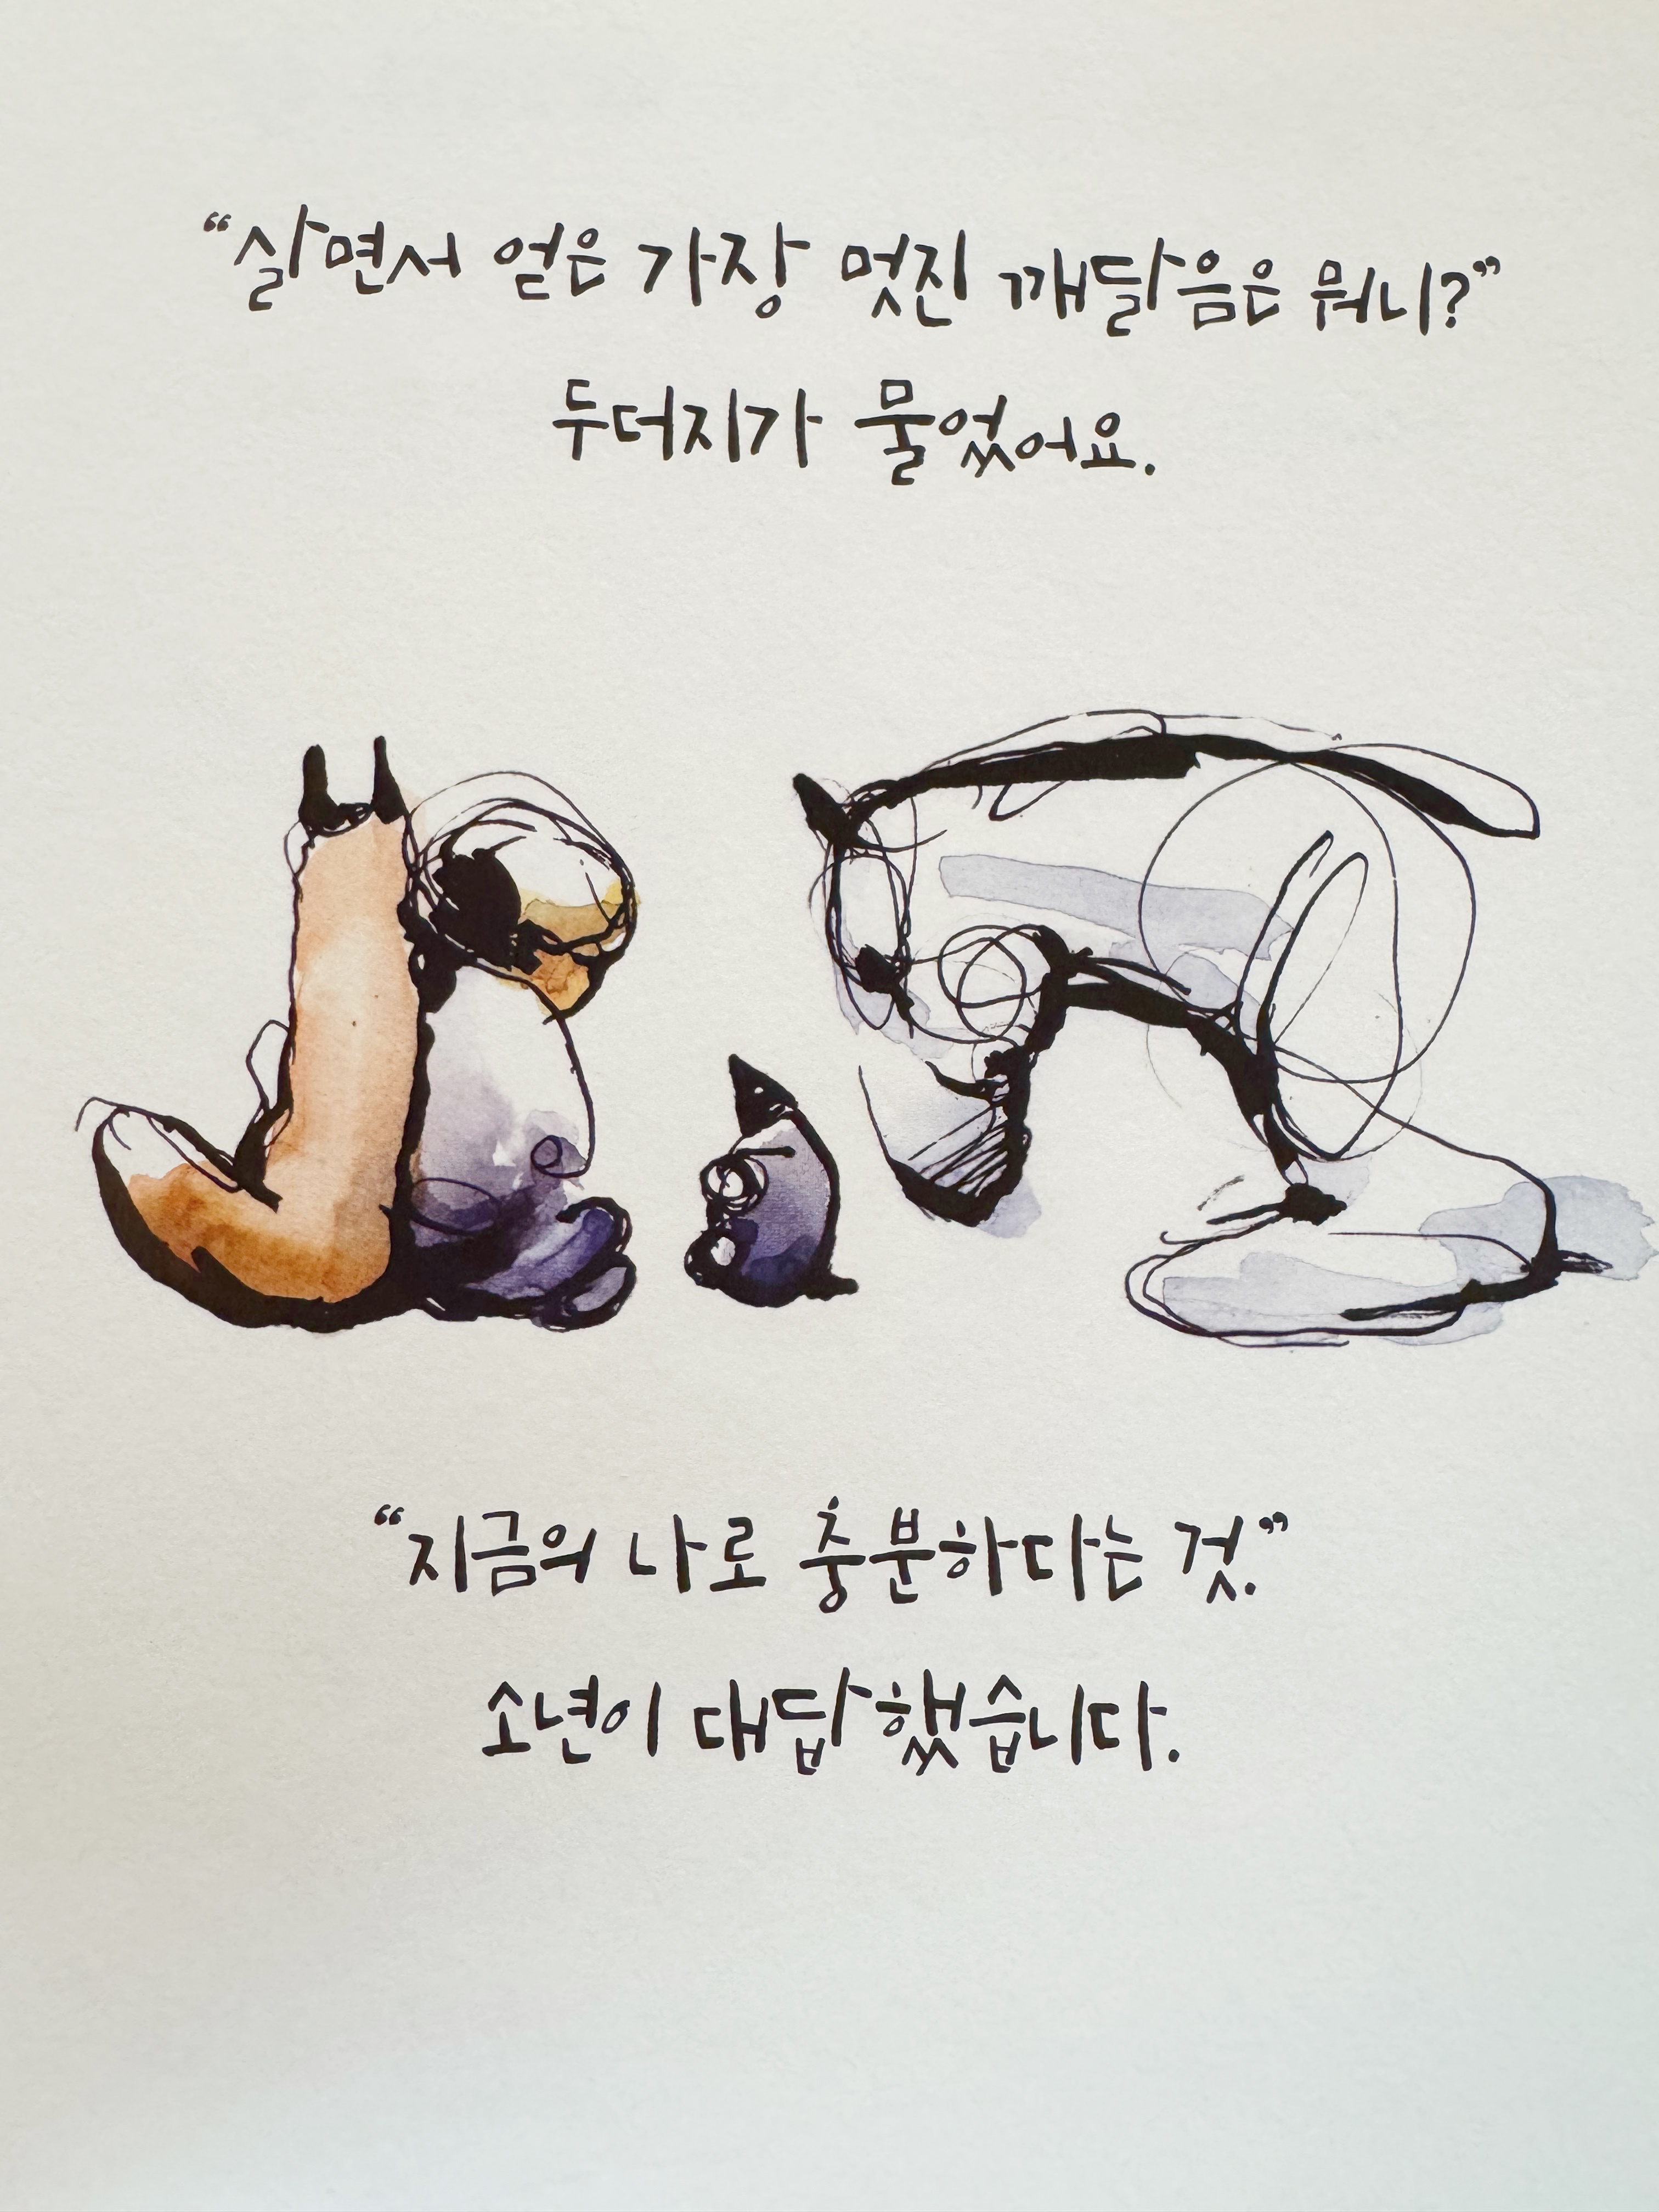 “살면서 얻은 가장 멋진 깨달음은 뭐니?”
두더지가 물었어요.
“지금의 나로 충분하다는 것.”
소년이 대답했습니다.